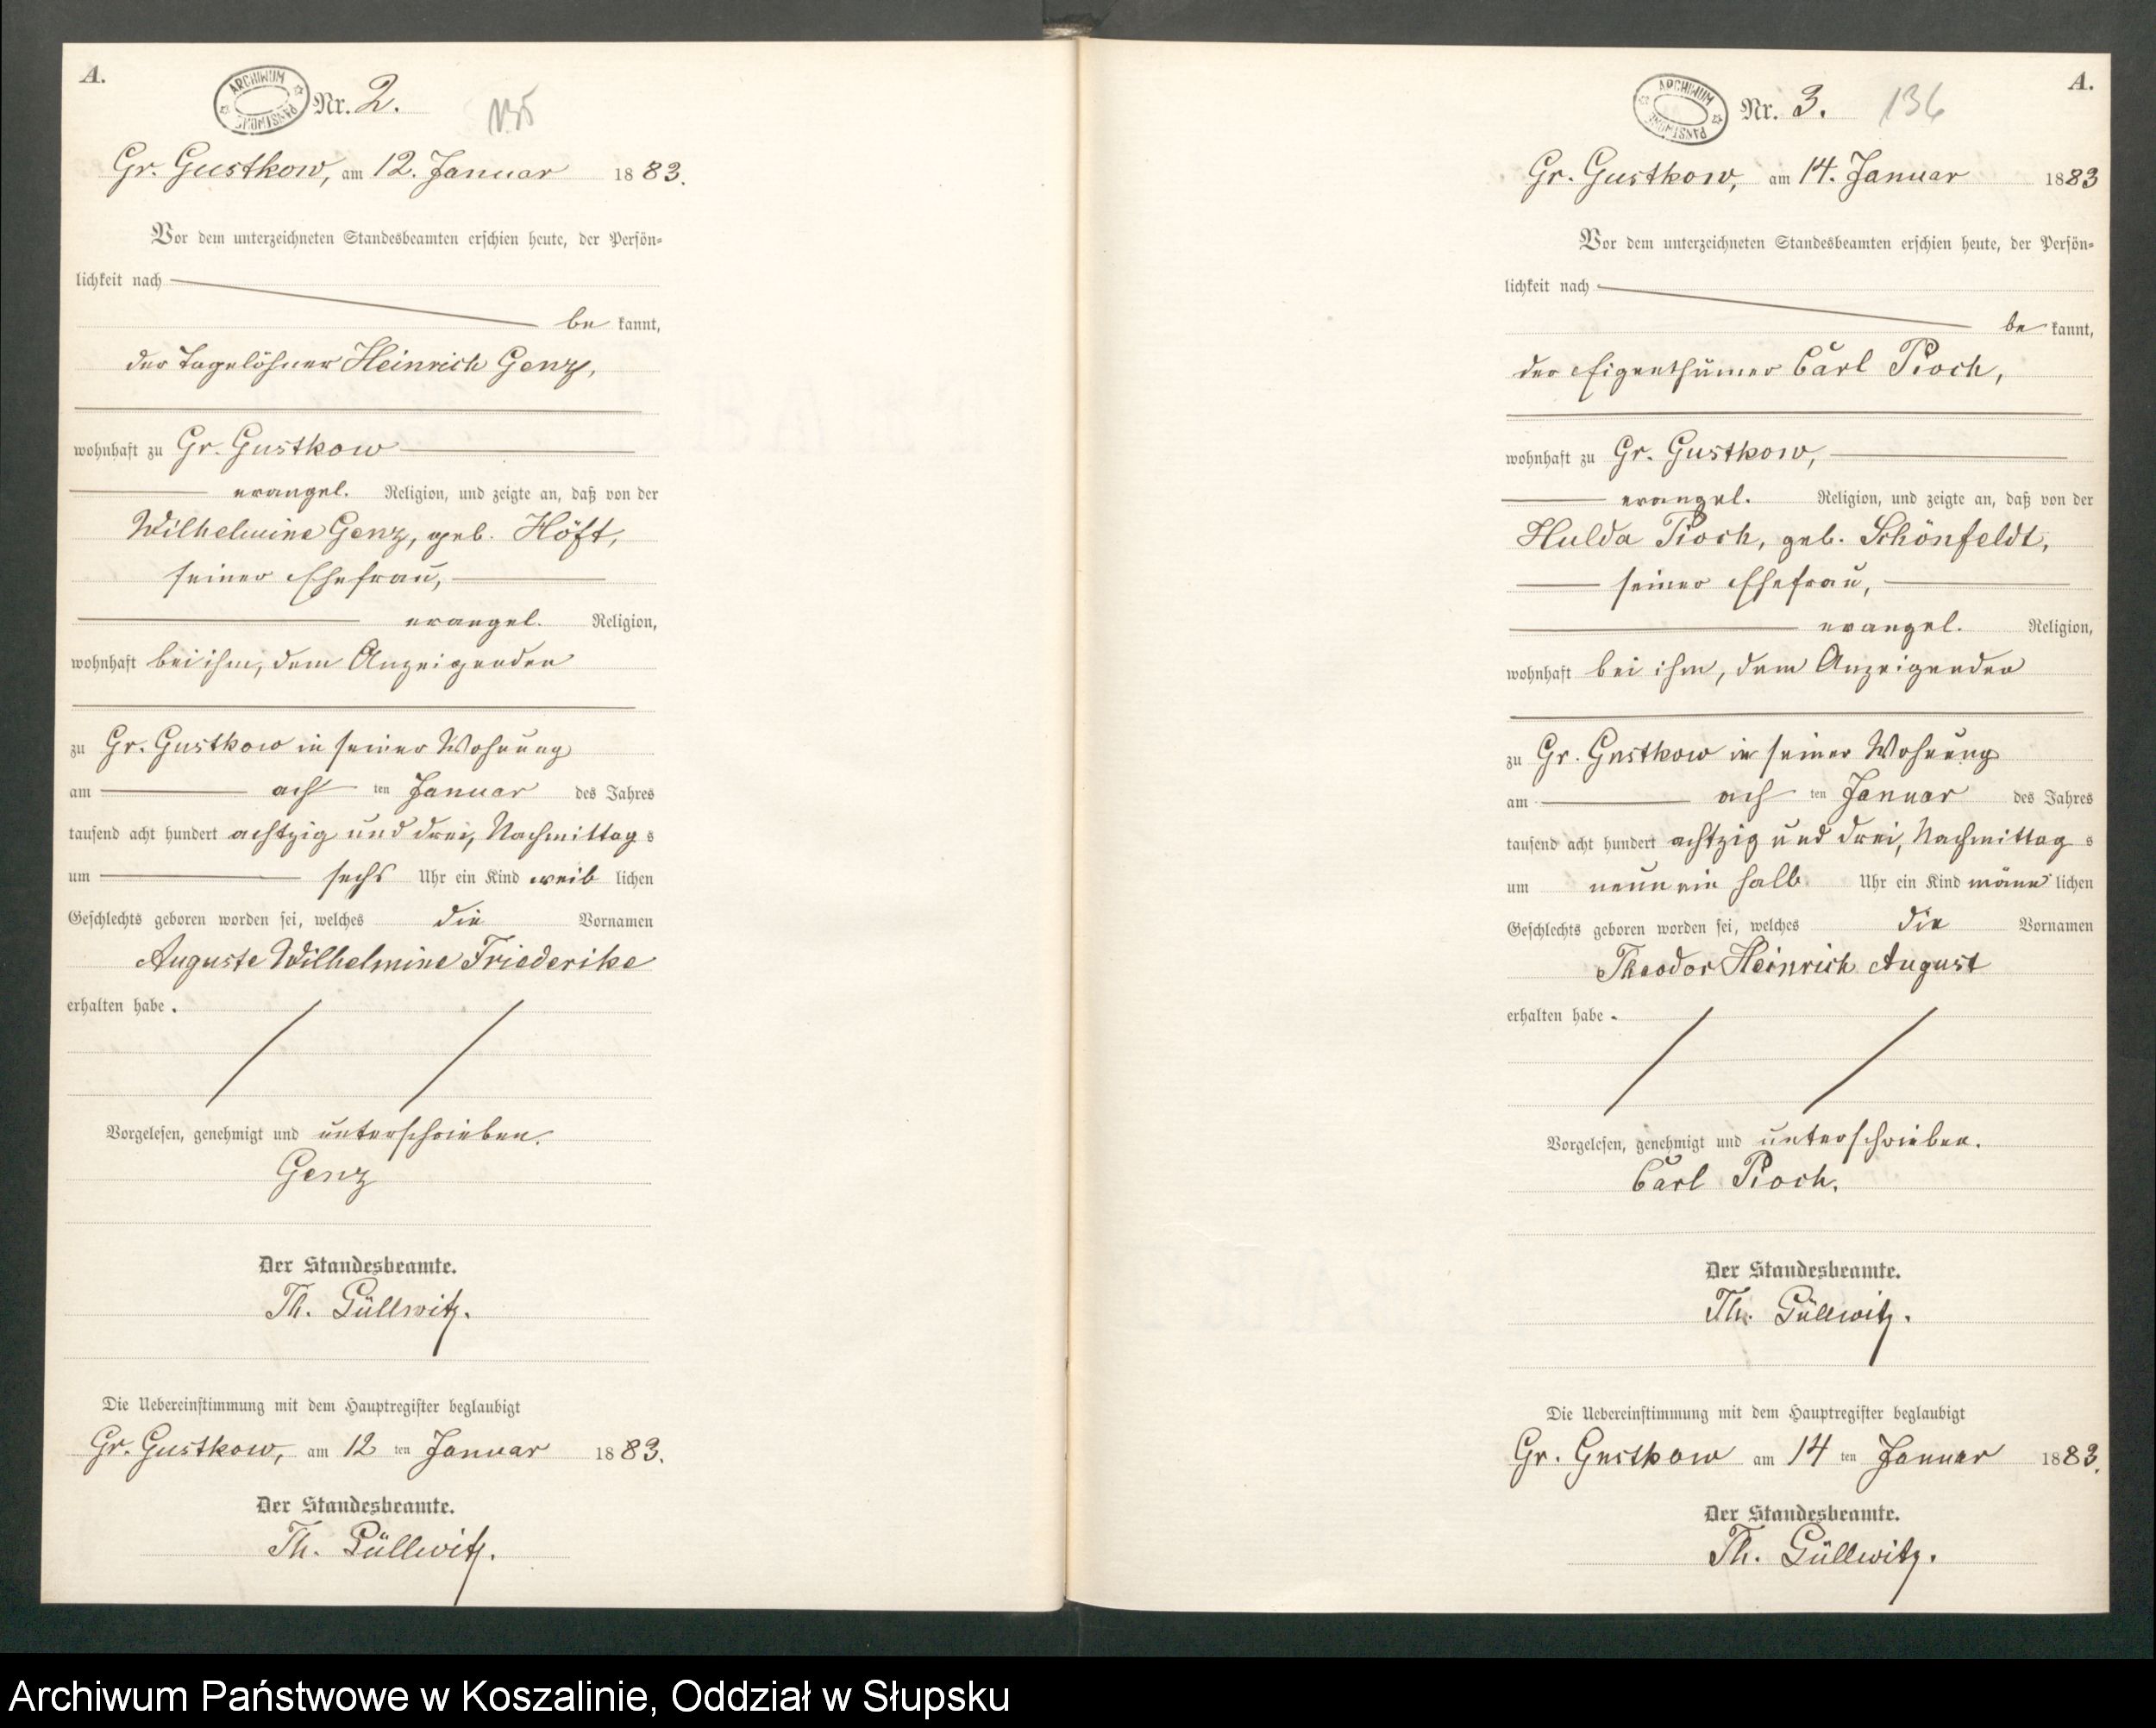 A.
ARCHIWUM PAŃSTWOWE
Nr. 2.
135
Gr. Gustkow, am 12. Januar 1883.
Vor dem unterzeichneten Standesbeamten erschien heute, der Persön-
lichkeit nach
be kannt,
der Tagelöhner Heinrich Genz,
wohnhaft zu Gr. Gustkow
evangel. Religion, und zeigte an, daß von der
Wilhelmine Genz, geb. Höft,
seiner Ehefrau,
evangel. Religion,
wohnhaft bei ihm, dem Anzeigenden
zu Gr. Gustkow in seiner Wohnung
am acht ten Januar des Jahres
tausend acht hundert achtzig und drei, Nachmittag s
um sechs Uhr ein Kind weib lichen
Geschlechts geboren worden sei, welches die Vornamen
Auguste Wilhelmine Friederike
erhalten habe.
Vorgelesen, genehmigt und unterschrieben.
Genz
Der Standesbeamte.
Th. Güllwitz.
Die Uebereinstimmung mit dem Hauptregister beglaubigt
Gr. Gustkow, am 12 ten Januar 1883.
Der Standesbeamte.
Th. Güllwitz.
A.
ARCHIWUM PAŃSTWOWE
Nr. 3.
136
Gr. Gustkow, am 14. Januar 1883
Vor dem unterzeichneten Standesbeamten erschien heute, der Persön-
lichkeit nach
be kannt,
der Eigenthümer Carl Pioch,
wohnhaft zu Gr. Gustkow,
evangel. Religion, und zeigte an, daß von der
Hulda Pioch, geb. Schönfeldt,
seiner Ehefrau,
evangel. Religion,
wohnhaft bei ihm, dem Anzeigenden
zu Gr. Gustkow in seiner Wohnung
am ach ten Januar des Jahres
tausend acht hundert achtzig und drei, Nachmittag s
um neun ein halb Uhr ein Kind männ lichen
Geschlechts geboren worden sei, welches die Vornamen
Theodor Heinrich August
erhalten habe.
Vorgelesen, genehmigt und unterschrieben.
Carl Pioch.
Der Standesbeamte.
Th. Güllwitz.
Die Uebereinstimmung mit dem Hauptregister beglaubigt
Gr. Gustkow am 14 ten Januar 1883.
Der Standesbeamte.
Th. Güllwitz.
Archiwum Państwowe w Koszalinie, Oddział w Słupsku